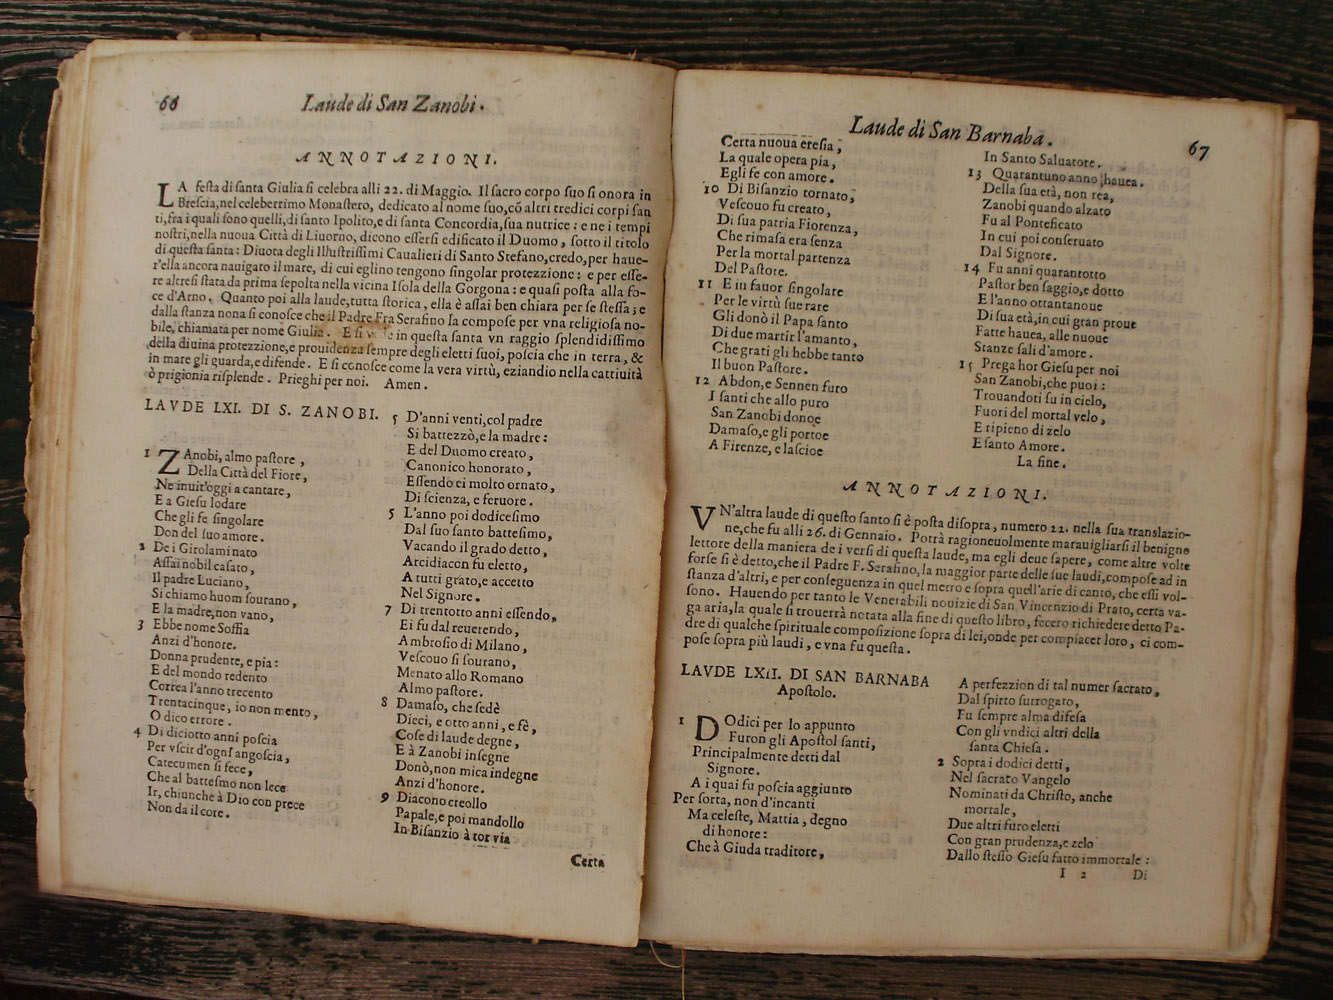 66
Laude di San Zanobi.
ANNOTAZIONI.
LA festa di santa Giulia si celebra alli 22. di Maggio. Il sacro corpo suo si onora in
Brescia, nel celeberrimo Monastero, dedicato al nome suo, cõ altri tredici corpi san
ti, fra i quali sono quelli, di santo Ipolito, e di santa Concordia, sua nutrice: e ne i tempi
nostri, nella nuoua Città di Liuorno, dicono essersi edificato il Duomo, sotto il titolo
di questa santa: Diuota degli Illustrissimi Caualieri di Santo Stefano, credo, per haue-
r'ella ancora nauigato il mare, di cui eglino tengono singolar protezzione: e per esse-
re altresi stata da prima sepolta nella vicina Isola della Gorgona: e quasi posta alla fo-
ce d'Arno. Quanto poi alla laude, tutta storica, ella è assai ben chiara per se stessa; e
dalla stanza nona si conosce che il Padre Fra Serafino la compose per vna religiosa no-
bile, chiamata per nome Giulia. E si in questa santa vn raggio splendidissimo
della diuina protezzione, e prouidenza sempre degli eletti suoi, poscia che in terra, &
in mare gli guarda, e difende. E si conosce come la vera virtù, eziandio nella cattiuità
ò prigionia risplende. Prieghi per noi. Amen.
LAVDE LXI. DI S. ZANOBI.
1 ZAnobi, almo pastore,
Della Città del Fiore,
Ne inuit'oggi a cantare,
E a Giesu lodare
Che gli fe singolare
Don del suo amore.
2 De i Girolami nato
Assai nobil casato,
Il padre Luciano,
Si chiamo huom sourano,
E la madre, non vano,
3 Ebbe nome Soffia
Anzi d'honore.
Donna prudente, e pia:
E del mondo redento
Correa l'anno trecento
Trentacinque, io non mento,
O dico errore.
4 Di diciotto anni poscia
Per vscir d'ogni angoscia,
Catecumen si fece,
Che al battesmo non lece
Ir, chiunche à Dio con prece
Non da il core.
5 D'anni venti, col padre
Si battezzò, e la madre:
E del Duomo creato,
Canonico honorato,
Essendo ei molto ornato,
Di scienza, e feruore.
5 L'anno poi dodicesimo
Dal suo santo battesimo,
Vacando il grado detto,
Arcidiacon fu eletto,
A tutti grato, e accetto
Nel Signore.
7 Di trentotto anni essendo,
Ei fu dal reuerendo,
Ambrosio di Milano,
Vescouo si sourano,
Menato allo Romano
Almo pastore.
8 Damaso, che sedè
Dieci, e otto anni, e fè,
Cose di laude degne,
E à Zanobi insegne
Donò, non mica indegne
Anzi d'honore.
9 Diacono creollo
Papale, e poi mandollo
In Bisanzio à tor via
Certa
Laude di San Barnaba.
67
Certa nuoua eresia,
La quale opera pia,
Egli fe con amore.
10 Di Bisanzio tornato,
Vescouo fu creato,
Di sua patria Fiorenza,
Che rimasa era senza
Per la mortal partenza
Del Pastore.
11 E in fauor singolare
Per le virtù sue rare
Gli donò il Papa santo
Di due martir l'amanto,
Che grati gli hebbe tanto
Il buon Pastore.
12 Abdon, e Sennen furo
I santi che allo puro
San Zanobi donoe
Damaso, e gli portoe
A Firenze, e lascioe
In Santo Saluatore.
13 Quarantuno anno hauea.
Della sua età, non rea,
Zanobi quando alzato
Fu al Ponteficato
In cui poi conseruato
Dal Signore.
14 Fu anni quarantotto
Pastor ben saggio, e dotto
E l'anno ottantanoue
Di sua età, in cui gran proue
Fatte hauea, alle nuoue
Stanze sali d'amore.
15 Prega hor Giesu per noi
San Zanobi, che puoi:
Trouandoti su in cielo,
Fuori del mortal velo,
E ripieno di zelo
E santo Amore.
La fine.
ANNOTAZIONI.
VN'altra laude di questo santo si è posta disopra, numero 22. nella sua translazio-
ne, che fu alli 26. di Gennaio. Potrà ragioneuolmente marauigliarsi il benigno
lettore della maniera de i versi di questa laude, ma egli deue sapere, come altre volte
forse si è detto, che il Padre F. Serafino, la maggior parte delle sue laudi, compose ad in
stanza d'altri, e per conseguenza in quel metro e sopra quell'arie di canto, che essi vol-
sono. Hauendo per tanto le Venerabili nouizie di San Vincenzio di Prato, certa va-
ga aria, la quale si trouerrà notata alla fine di questo libro, fecero richiedere detto Pa-
dre di qualche spirituale composizione sopra di lei, onde per compiacer loro, ci com-
pose sopra più laudi, e vna fu questa.
LAVDE LXII. DI SAN BARNABA
Apostolo.
1 DOdici per lo appunto
Furon gli Apostol santi,
Principalmente detti dal
Signore.
A i quai fu poscia aggiunto
Per sorta, non d'incanti
Ma celeste, Mattia, degno
di honore:
Che à Giuda traditore,
A perfezzion di tal numer sacrato,
Dal spirto surrogato,
Fu sempre alma difesa
Con gli vndici altri della
santa Chiesa.
2 Sopra i dodici detti,
Nel sacrato Vangelo
Nominati da Christo, anche
mortale,
Due altri furo eletti
Con gran prudenza, e zelo
Dallo stesso Giesu fatto immortale:
I 2
Di